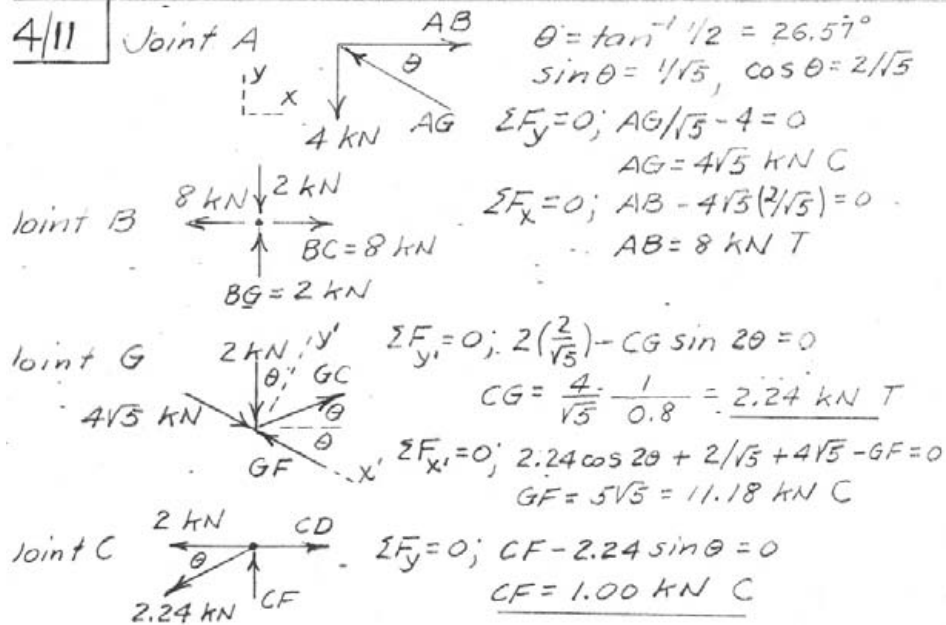 4/11 Joint A
AB
θ = tan⁻¹ 1/2 = 26.57°
sin θ = 1/√5, cos θ = 2/√5
y
x
θ
4 kN
AG
ΣFy = 0; AG/√5 - 4 = 0
AG = 4√5 kN C
ΣFx = 0; AB - 4√5(2/√5) = 0
AB = 8 kN T
Joint B
8 kN
2 kN
BC = 8 kN
BG = 2 kN
Joint G
2 kN
y'
θ
GC
4√5 kN
θ
θ
GF
x'
ΣFy' = 0; 2(2/√5) - CG sin 2θ = 0
CG = 4/√5 · 1/0.8 = 2.24 kN T
ΣFx' = 0; 2.24 cos 2θ + 2/√5 + 4√5 - GF = 0
GF = 5√5 = 11.18 kN C
Joint C
2 kN
CD
θ
2.24 kN
CF
ΣFy = 0; CF - 2.24 sin θ = 0
CF = 1.00 kN C